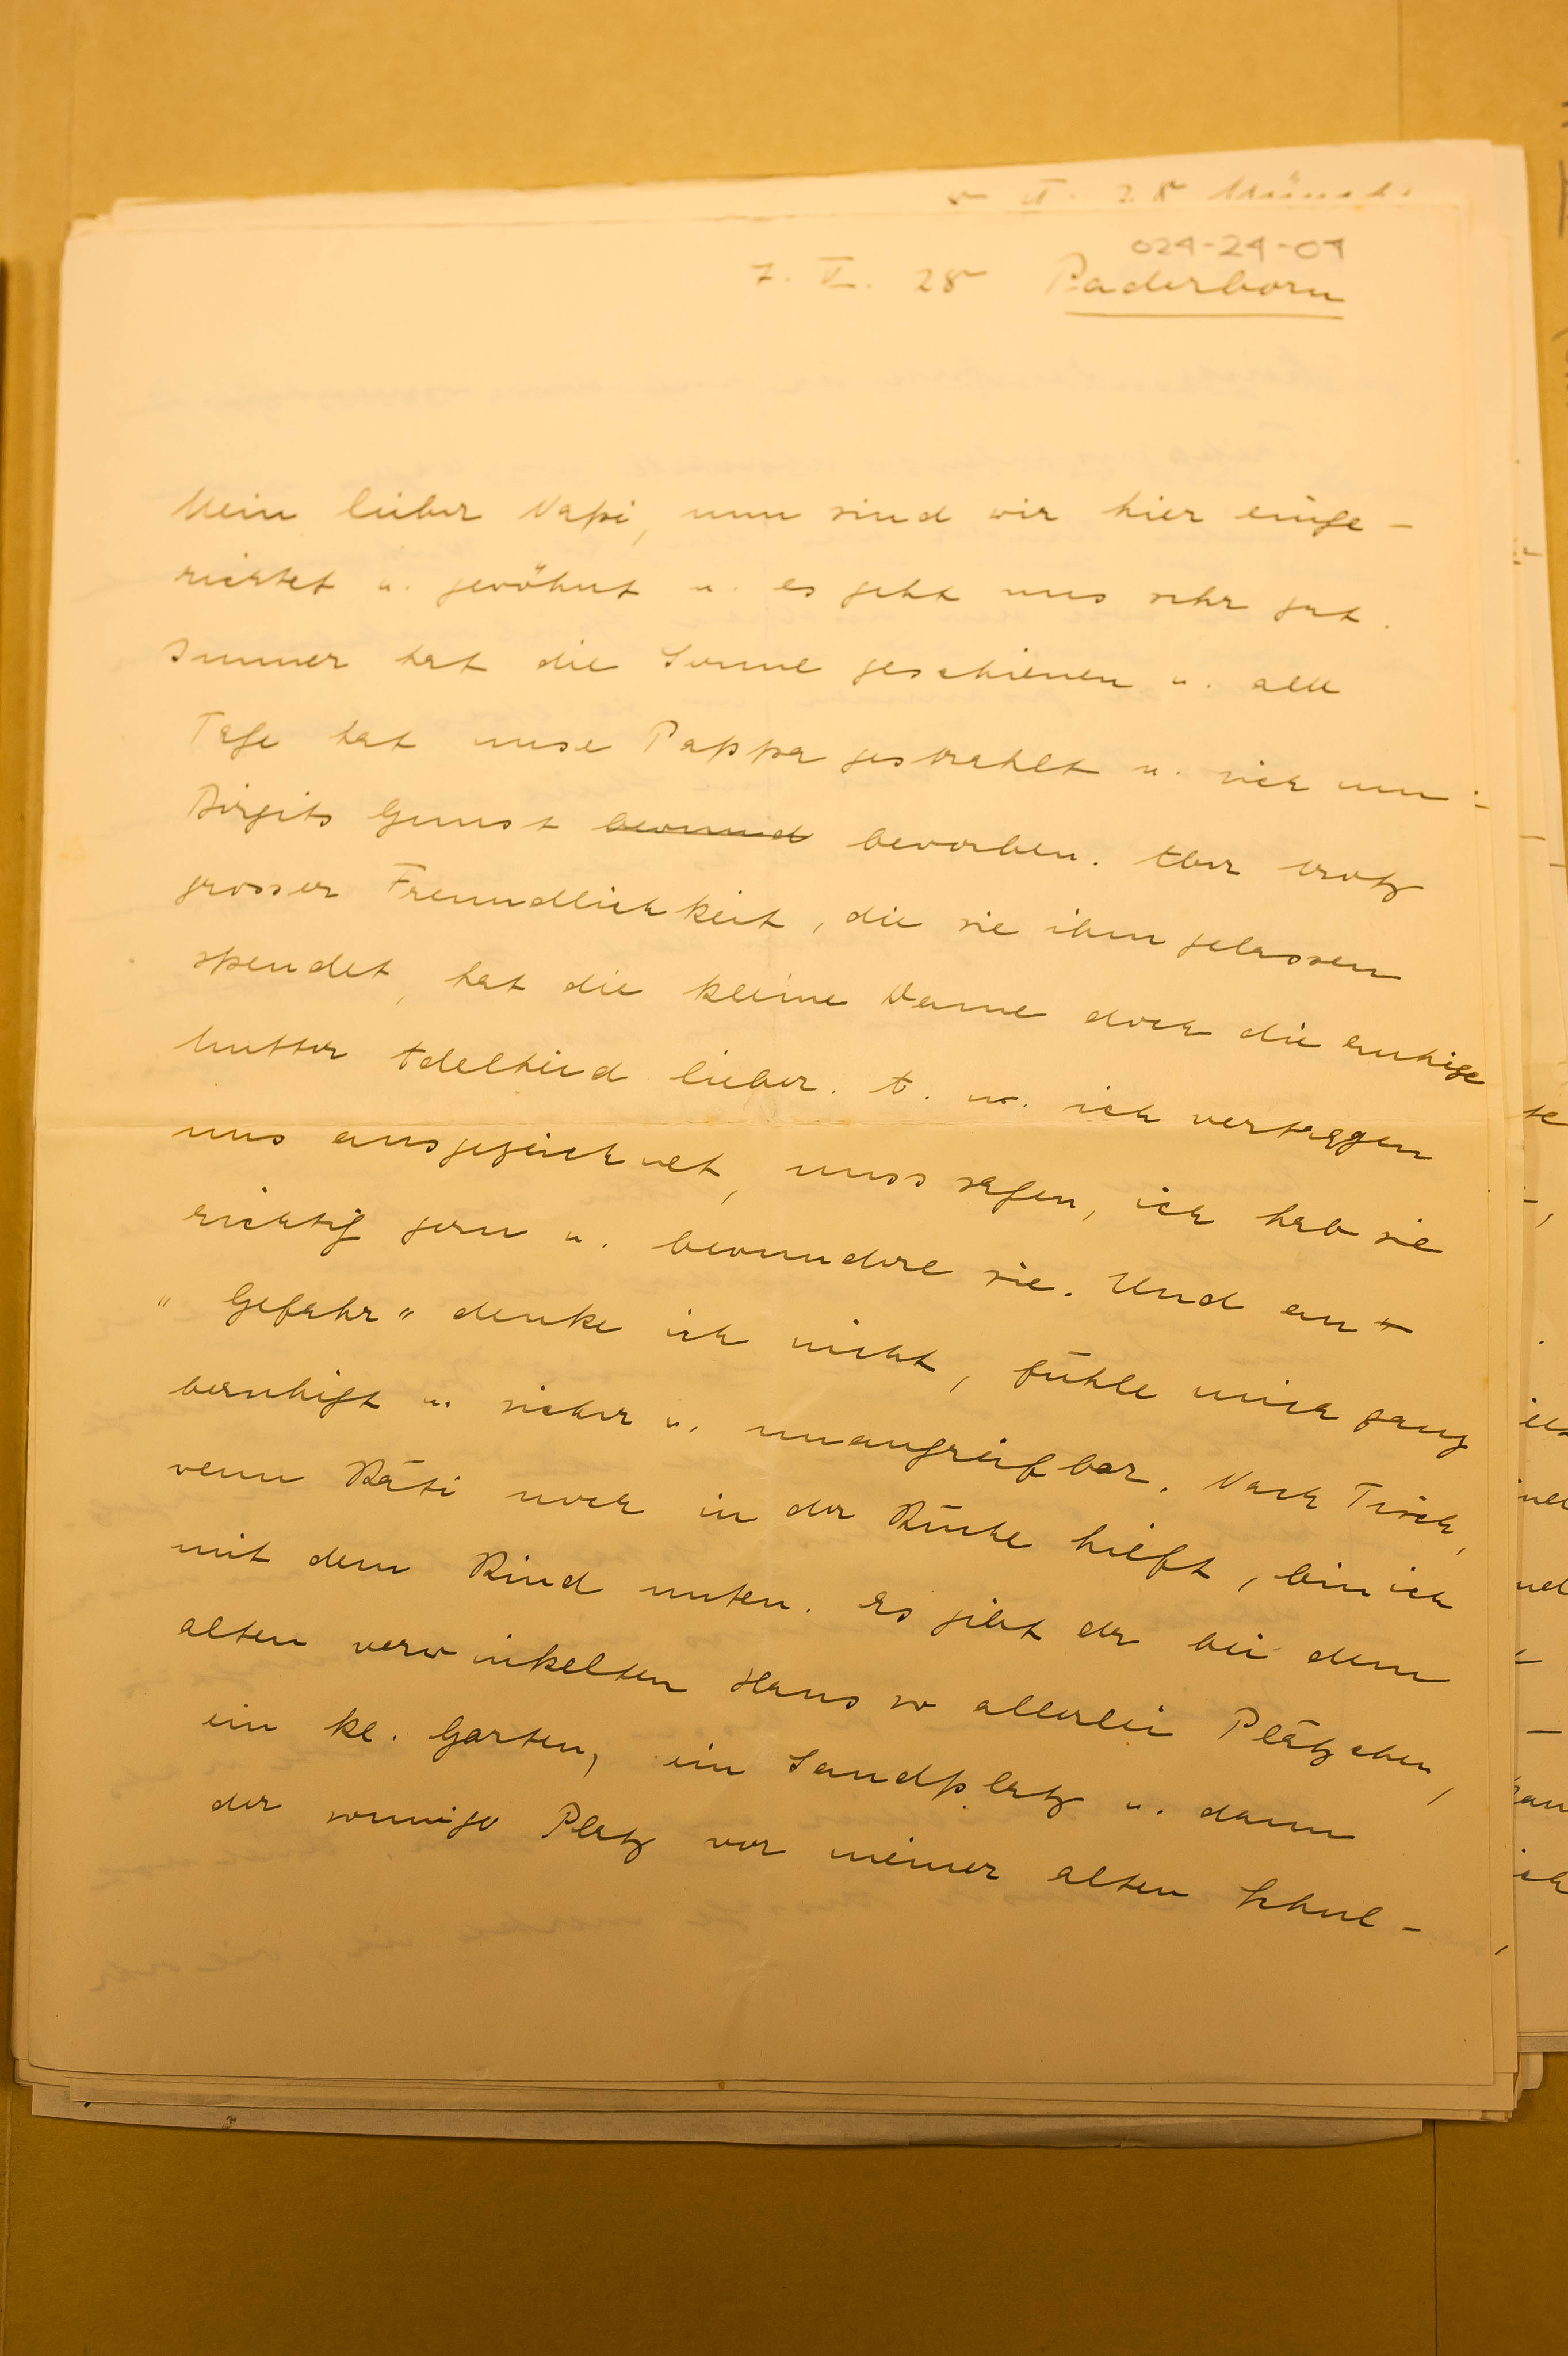 5 II. 28 Münch.
024-24-04
7. II. 28 Paderborn
Mein lieber Napi, nun sind wir hier einge-
richtet u. gewöhnt u. es geht uns sehr gut.
Immer hat die Sonne geschienen u. alle
Tage hat unse Pappa gestrahlt u. sich um
Birgits Gunst bewund beworben. Aber trotz
grosser Freundlichkeit, die sie ihm gelassen
spendet, hat die kleine Dame doch die ruhige
Mutter Adelheid lieber. A. u. ich vertragen
uns ausgezeichnet, muss sagen, ich hab sie
richtig gern u. bewundere sie. Und an
"Gefahr" denke ich nicht, fühle mich ganz
beruhigt u. sicher u. unangreifbar. Nach Tisch,
wenn Käti noch in der Küche hilft, bin ich
mit dem Kind unten. Es gibt da bei dem
alten verwinkelten Haus so allerlei Plätzchen,
ein kl. Garten, ein Sandplatz u. dann
der sonnige Platz vor meiner alten Schul-